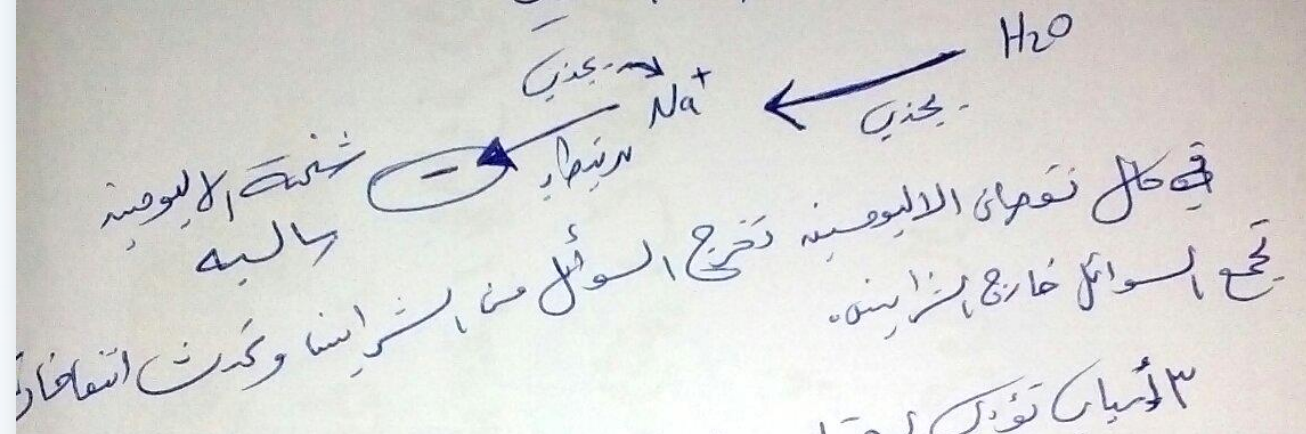 H2O
يجذب
Na+
يجذب
يرتبط
شحنة الالبومين
سالبه
في حال نقصان الالبومين تخرج السوائل من الشرايين وتحدث انتفاخات
تجمع السوائل خارج الشرايين.
٣ أسباب تؤدي